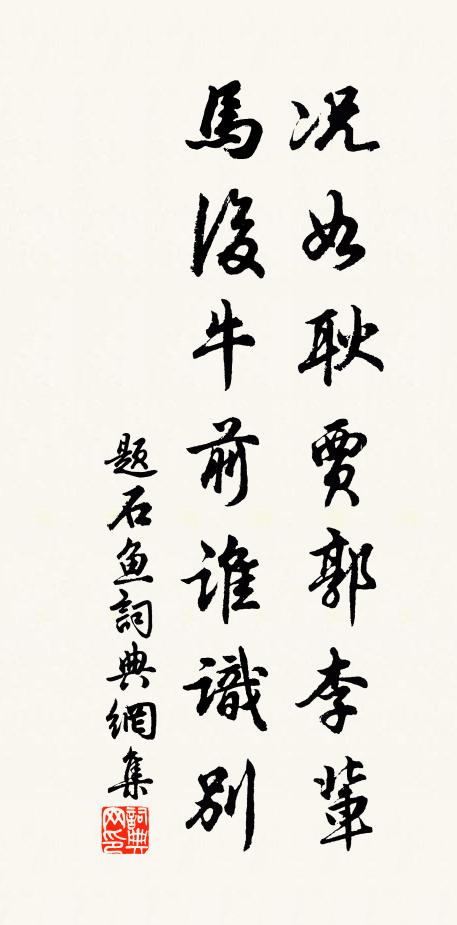 况如耿賈郭李輩
馬後牛前誰識別
題石魚詞典網集
詞典网印